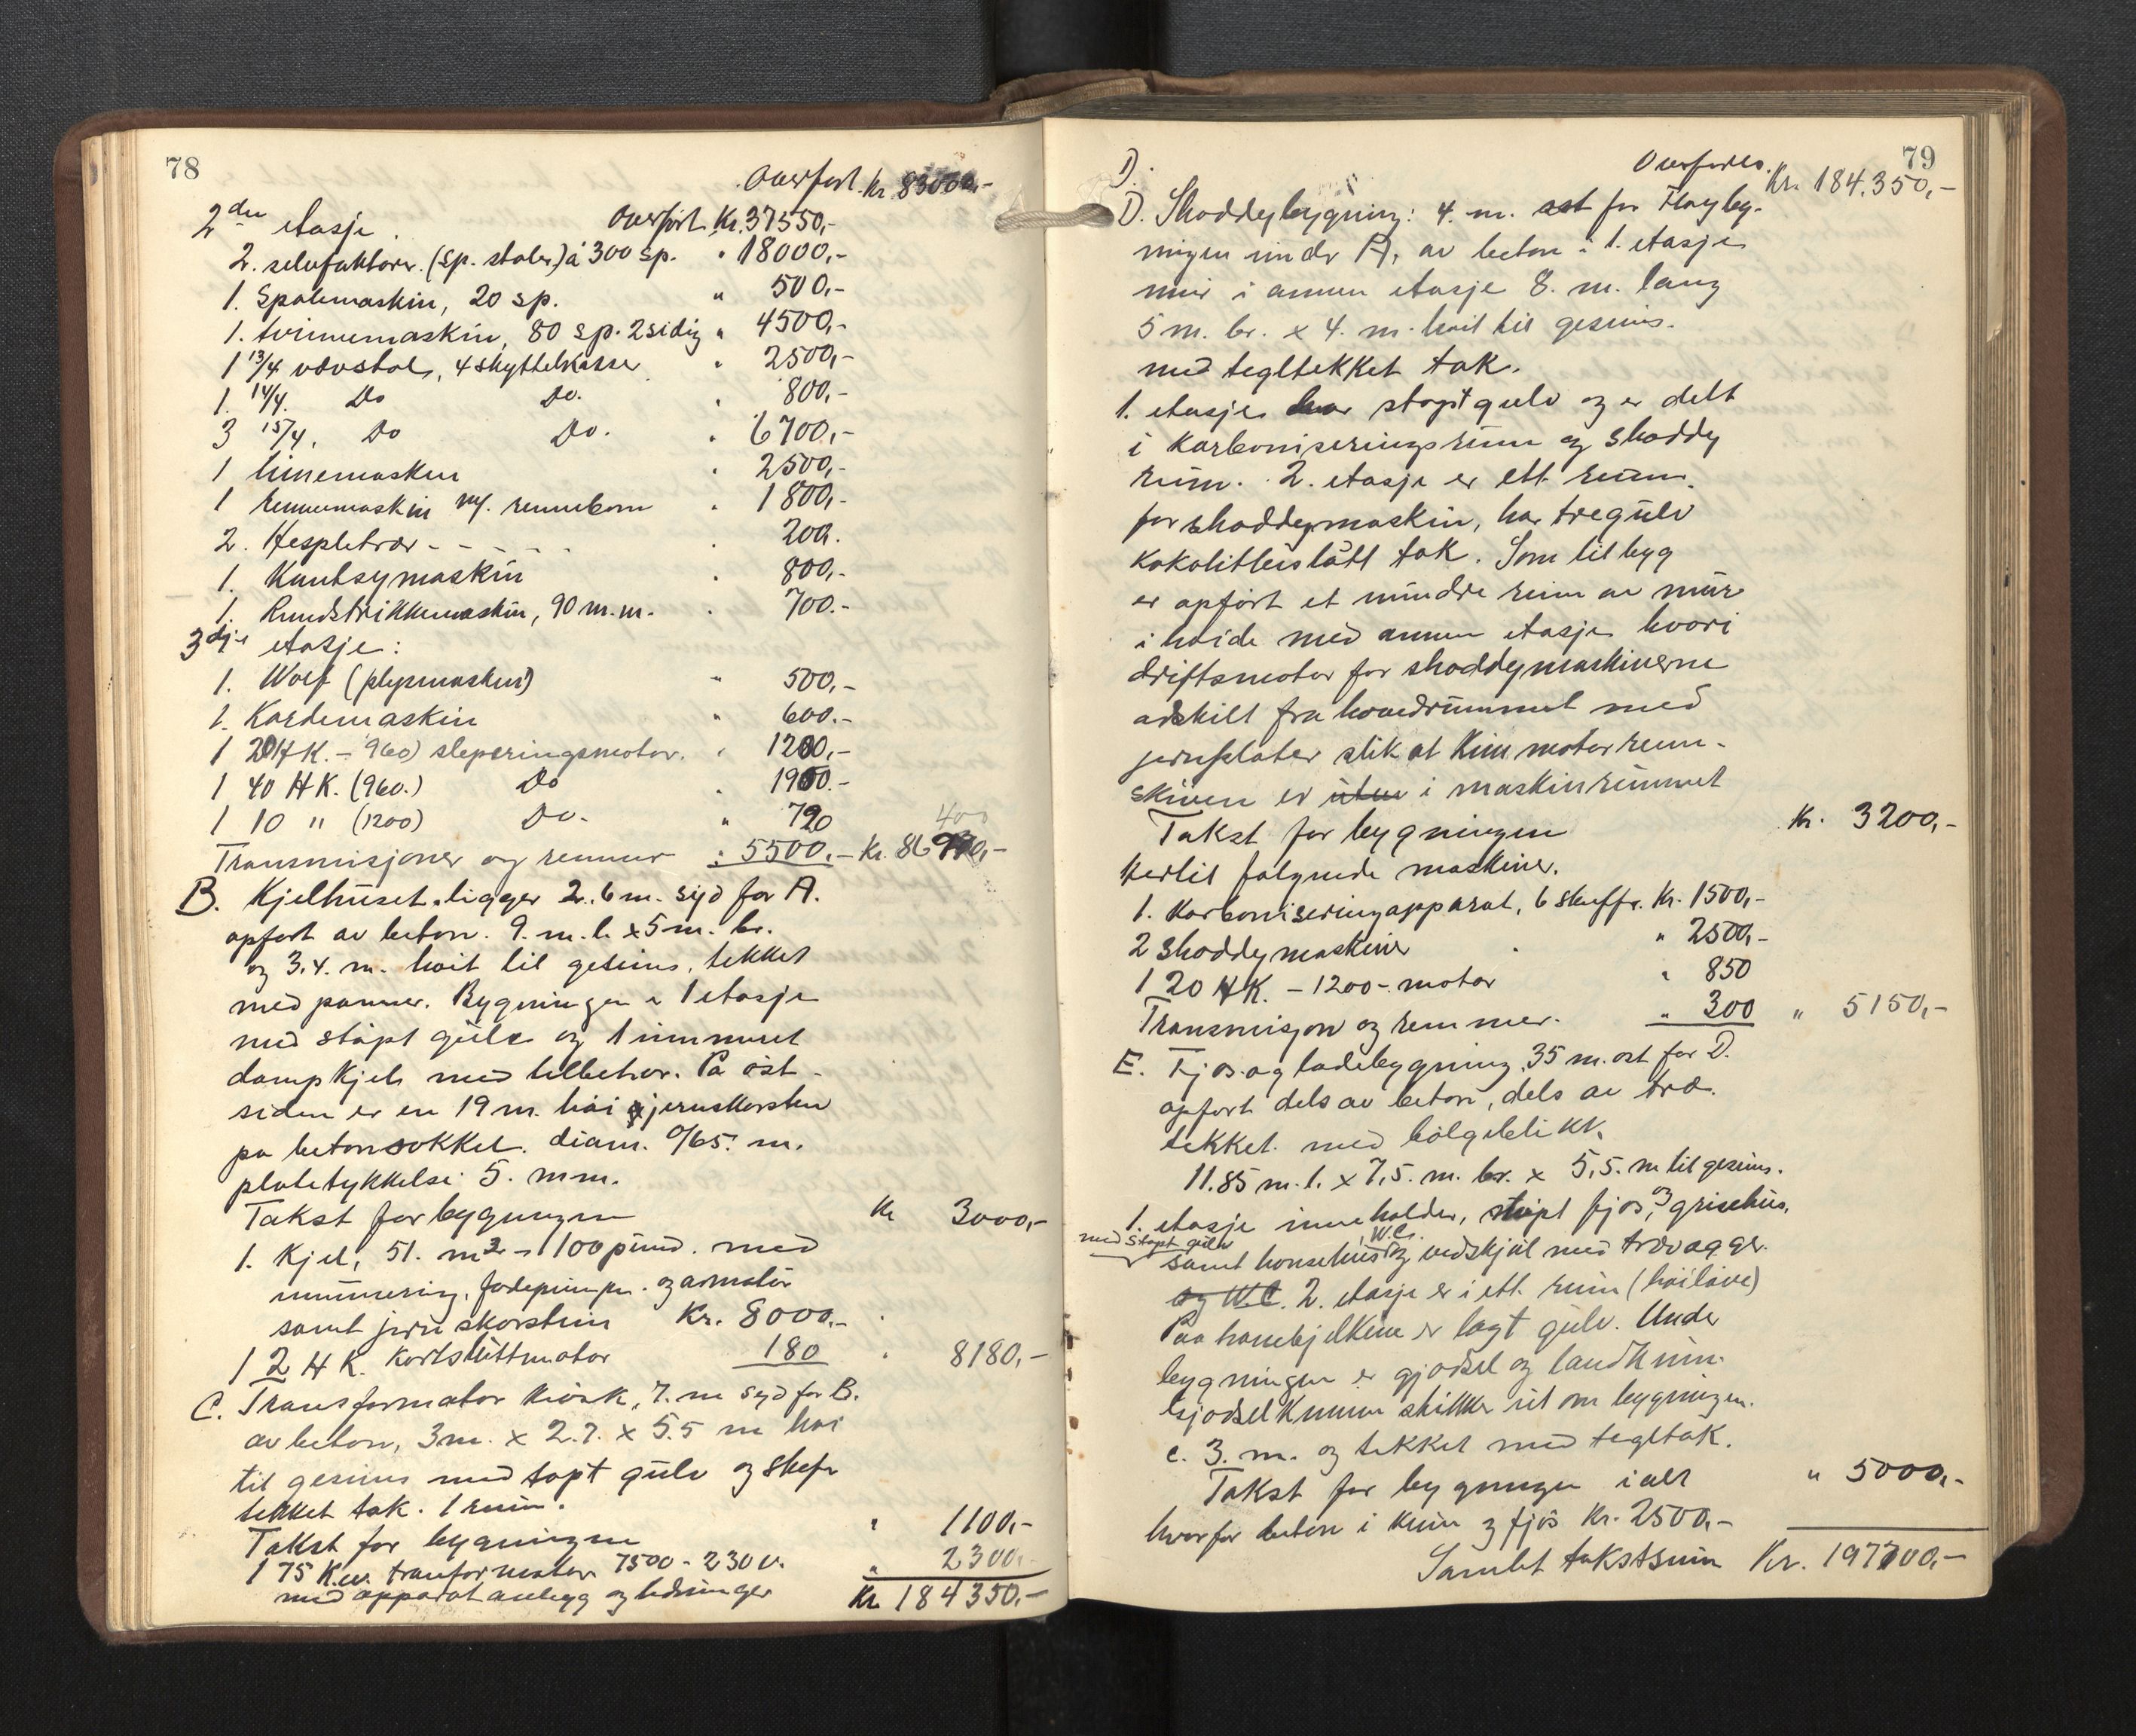 78
Overført Kr. 83000,-
2den etasje. Overført Kr. 37550,-
2. selvfaktorer. (Sp. stoler) á 300 sp. " 18000,-
1. Spolemaskin, 20 sp. " 500,-
1. tvinnemaskin, 80 sp. 2sidig " 4500,-
1 13/4 vævstol, 4 skyttelkasse " 2500,-
1. 14/4. Do Do. " 800,-
3 15/4. Do Do. " 6700,-
1 limemaskin " 2500,-
1 rennemaskin m/. rennebom " 1800,-
2. Hespletrær - - - - - " 200.
1. Kantsymaskin " 800,-
1. Rundstrikkemaskin, 90 m.m. " 700.-
3dje etasje:
1. Wolf (plysmaskin) " 500,-
1. Kardemaskin " 600.-
1 20 H.K. - 960) sleperingsmotor. " 1200,-
1 40 H K. (960.) Do " 1900.-
1 10 " (1200) Do. " 720
400
Transmisjoner og remmer " 5500,- Kr. 86770,-
B. Kjelhuset ligger 2.6 m. syd for A.
opført av beton. 9. m. l. x 5 m. br.
og 3.4. m. høit til gesims, tekket
med panner. Bygningen er 1 etasje
med støpt gulv og 1 innmuret
dampkjel med tilbehør. På øst-
siden er en 19 m. høi jernskorsten
på betonsokkel. diam. 0/65. m.
platetykkelse 5. mm.
Takst for bygningen Kr 3000,-
1. Kjel, 51. m2 - 100 pund. med
innmuring, fødepumpe. og armatur
samt jernskorstein Kr. 8000.-
1 2 H K. Kortsluttmotor 180 " 8180,-
C. Transformator kiosk, 7. m syd for B.
av beton, 3 m. x 2.7. x 5.5 m høi
til gesims med støpt gulv og skifer
tekket tak. 1 rum.
Takst for bygningen " 1100,-
1 75 K.w. tranformator 7500 - 230 v. " 2300,-
med apparatanlegg og ledninger Kr. 184350,-
79
D. Overføres. Kr. 184.350,-
D. Shoddybygning: 4. m. øst for Fløyby-
ningen under A, av beton i 1. etasje
mur i annen etasje 8. m. lang
5 m. br. x 4. m. høit til gesims.
med tegltekket tak.
1. etasje har støpt gulv og er delt
i Karboniseringsrum og Shoddy
rum. 2. etasje er ett rum.
for shoddymaskin, har tregulv
kokolitbeslått tak. Som tilbyg
er opført et mindre rum av mur
i høide med annen etasje hvori
driftsmotor for shoddymaskinerne
adskilt fra hovedrummet med
jernplater slik at kun motorrem-
skiven er uten i maskinrummet
Takst for bygningen Kr. 3200,-
Hertil følgende maskiner.
1. Karboniseringapparat, 6 skuffer. Kr. 1500,-
2 shoddymaskiner " 2500,-
1 20 H K. - 1200-. motor " 850
Transmisjon og remmer. " 300 " 5150,-
E. Fjøs og ladebygning, 35 m. øst for D.
opført dels av beton, dels av træ.
tekket med bølgeblikk.
11.85 m. l. x 7,5. m. br. x 5,5. m til gesims.
1. etasje inneholder, støpt fjøs, og grisehus,
med støpt gulv
samt hønsehus, W.C. og vedskjul med trævægger.
og W.C. 2. etasje er i ett. rum (høiløve)
Paa hanebjelkene er lagt gulv. Under
bygningen er gjødsel og landkum.
Gjødselkummen stikker ut om bygningen.
c. 3. m. og tekket med tegltak.
Takst for bygningen ialt " 5000,-
hvorfor beton i kum og fjøs Kr. 2500,-
Samlet takstsum Kr. 197700,-